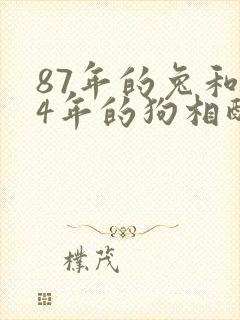 87年的兔和
4年的狗相配
樸茂